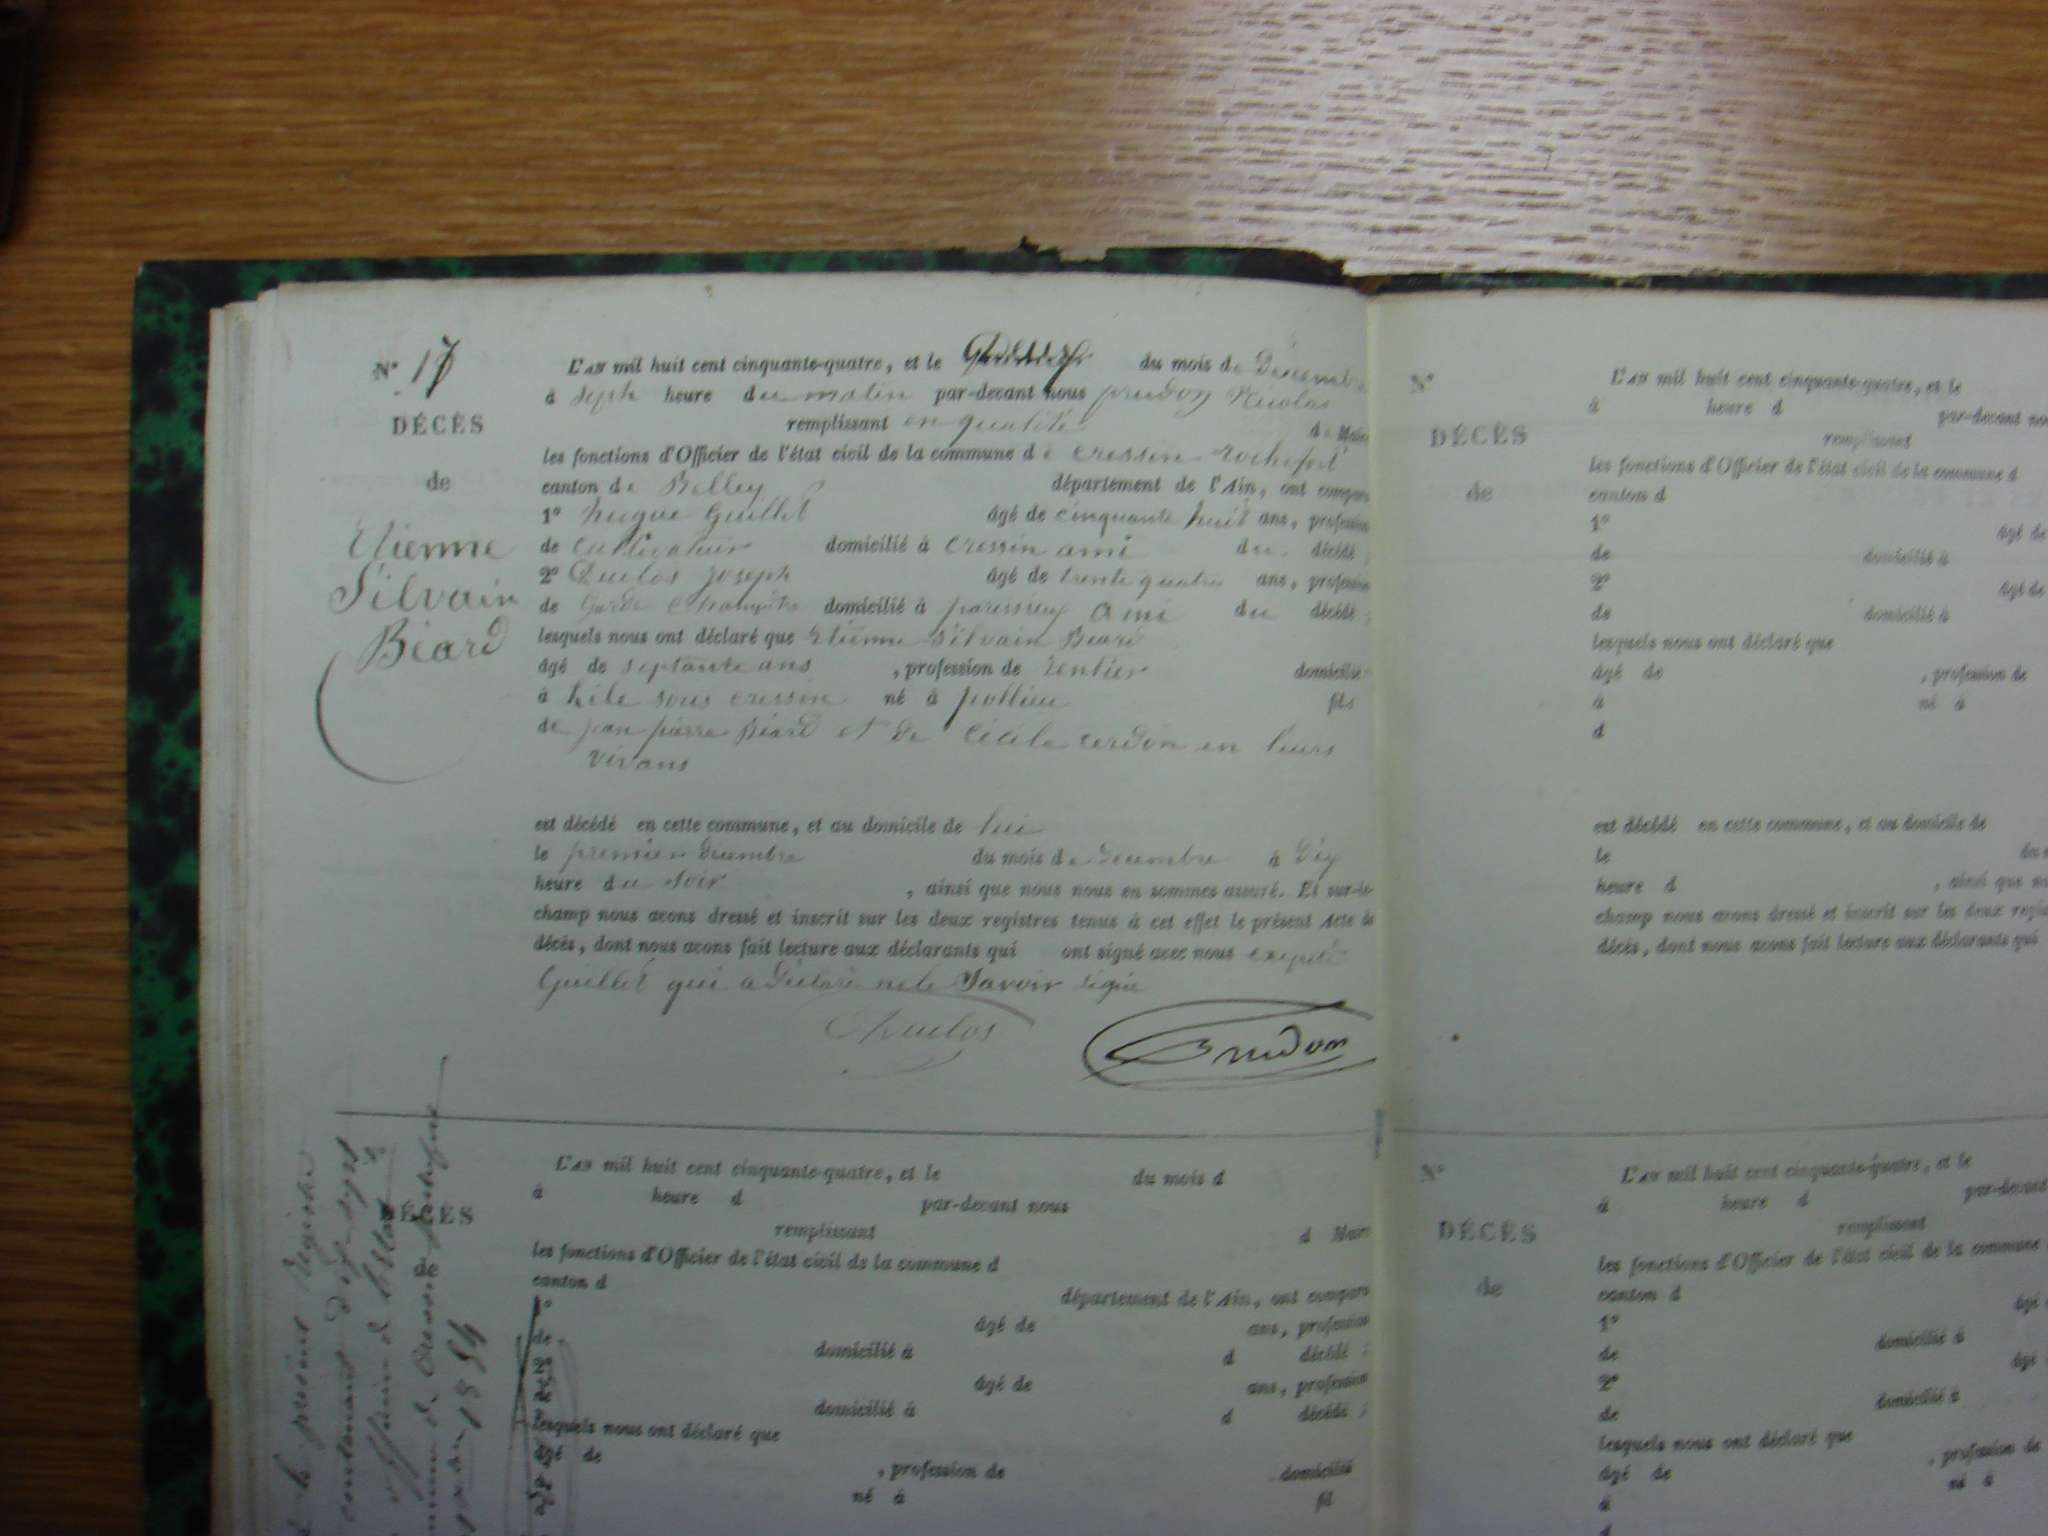 N° 17
DÉCÈS
de
Etienne
Silvain
Béard
L'AN mil huit cent cinquante-quatre, et le du mois de Décembre
à Sept heure du matin par-devant nous prudon Nicolas
remplissant en qualité de Maire
les fonctions d'Officier de l'état civil de la commune de cressin rochefort
canton de Belley département de l'Ain, ont comparu
1° hugue Guillet âgé de cinquante huit ans, profession
de cultivateur domicilié à cressin ami du décédé ;
2° Duclos Joseph âgé de trente quatre ans, profession
de Garde Champêtre domicilié à parissieu ami du décédé ;
lesquels nous ont déclaré que Etienne Silvain Béard
âgé de septante ans , profession de rentier domicilié
à lile sous cressin né à pollieu fils
de jean pierre Béard et de Cécile cerdon en leurs
vivans
est décédé en cette commune, et au domicile de lui
le premier Decembre du mois de Decembre à Dix
heure du soir , ainsi que nous nous en sommes assuré. Et sur-le-
champ nous avons dressé et inscrit sur les deux registres tenus à cet effet le présent Acte de
décès, dont nous avons fait lecture aux déclarants qui ont signé avec nous excepté
Guillet qui a Déclaré ne le Savoir signé
Duclos
Prudon
le présent Registre
contenant
de l'Etat
de Cressin Rochefort
1854
DÉCÈS
de
L'AN mil huit cent cinquante-quatre, et le du mois d
à heure d par-devant nous
remplissant d Maire
les fonctions d'Officier de l'état civil de la commune d
canton d département de l'Ain, ont comparu
1° âgé de ans, profession
de domicilié à d décédé ;
2° âgé de ans, profession
de domicilié à d décédé ;
lesquels nous ont déclaré que
âgé de , profession de domicilié
né à fil
N°
DÉCÈS
de
L'AN mil huit cent cinquante-quatre, et le
à heure d par-devant nous
remplissant
les fonctions d'Officier de l'état civil de la commune d
canton d
1° âgé de
de domicilié à
2° âgé de
de domicilié à
lesquels nous ont déclaré que
âgé de , profession de
à né à
d
est décédé en cette commune, et au domicile de
le du
heure d , ainsi que
champ nous avons dressé et inscrit sur les deux
décès, dont nous avons fait lecture aux déclarants qui
N°
DÉCÈS
de
L'AN mil huit cent cinquante-quatre, et le
à heure d par-devant
remplissant
les fonctions d'Officier de l'état civil de la commune
canton d
1° âgé
de domicilié à
2° âgé
de domicilié à
lesquels nous ont déclaré que
âgé de , profession de
à né à
d